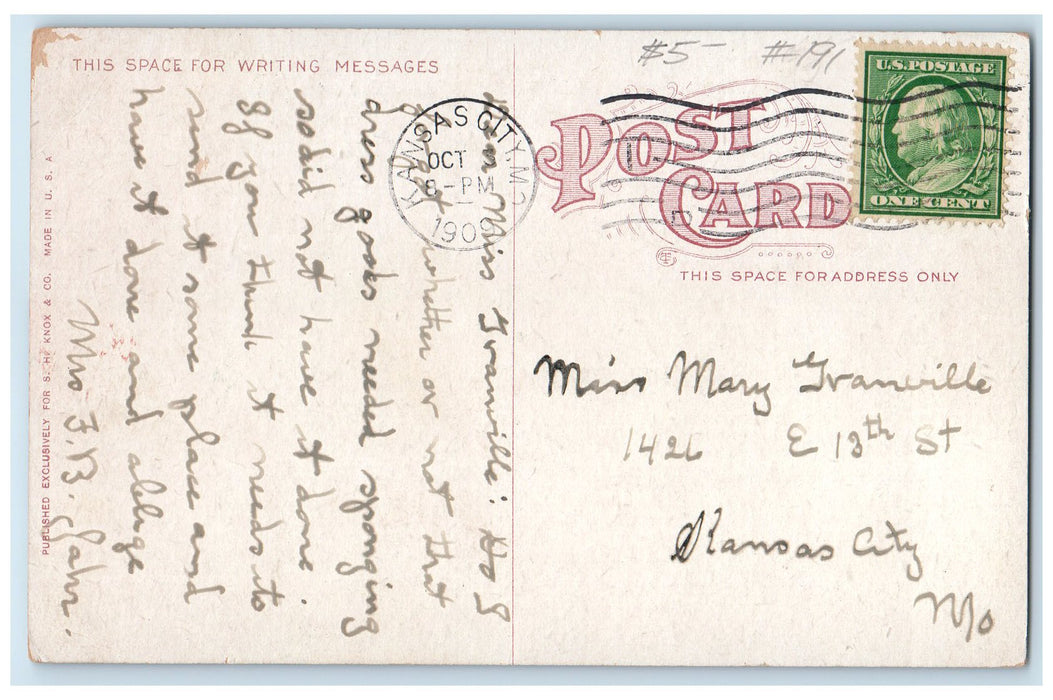 THIS SPACE FOR WRITING MESSAGES
Dear Miss Granville: As I
forgot whether or not that
dress goods needed sponging
so did not have it done
If you think it needs it
send it some place and
have it done and oblige
Mrs F.B. Jahn.
PUBLISHED EXCLUSIVELY FOR S. H. KNOX & CO. MADE IN U. S. A
KANSAS CITY, MO
OCT
8-PM
1909
$5- #191
U.S. POSTAGE
ONE CENT
POST CARD
THIS SPACE FOR ADDRESS ONLY
Miss Mary Granville
1426 E 13th St
Kansas City
Mo